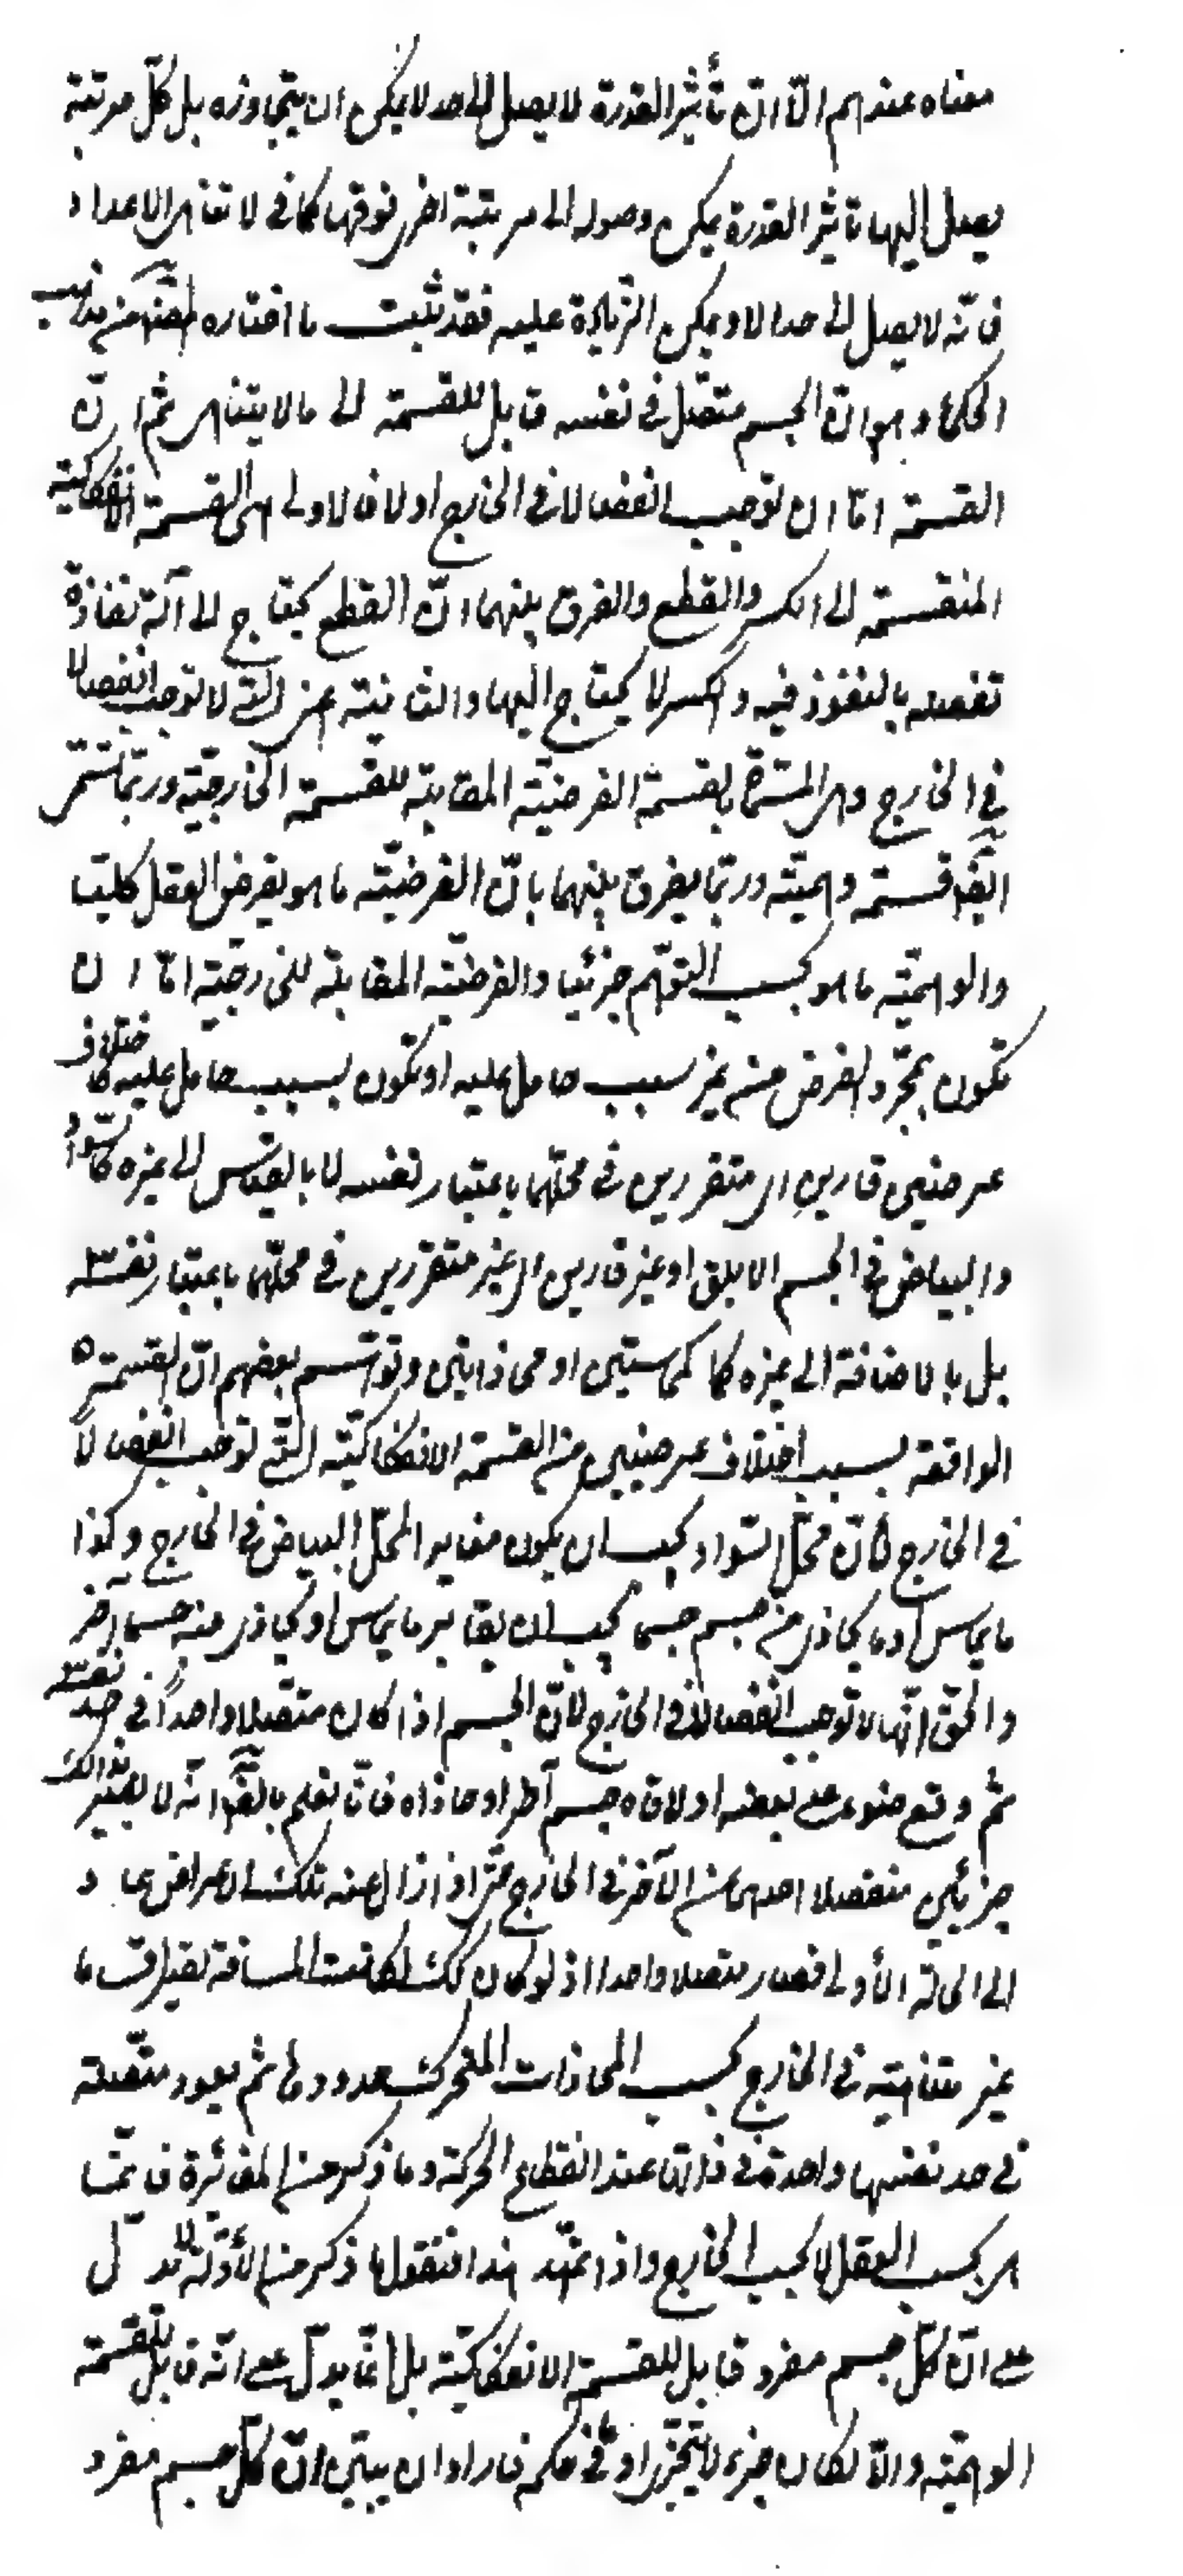 معناه عندهم الا ان تأثير القدرة لا يصل الى حد لا يمكن ان يتجاوزه بل كل مرتبة
يصل اليها تاثير القدرة يمكن وصوله الى مرتبة اخرى فوقها كما فى لا تناهى الاعداد
فانه لا يصل الى حد الا ويمكن الزيادة عليه فقد ثبت ما اختاره المصنف من مذهب
الحكماء وهو ان الجسم متصل فى نفسه قابل للقسمة الى ما لا يتناهى ثم ان
القسمة اما ان توجب انفصالا فى الخارج او لا فالاولى هى القسمة الانفكاكية
المنقسمة الى الكسر والقطع والفرق بينهما ان القطع يحتاج الى آلة نفاذة
تفصله بالنفوذ فيه والكسر لا يحتاج اليها والثانية هى التى لا توجب انفصالا
فى الخارج وهى المسماة بالقسمة الفرضية المقابلة للقسمة الخارجية وربما تسمى
ايضا قسمة وهمية وربما يفرق بينهما بان الفرضية ما هو بفرض العقل كليا
والوهمية ما هو بحسب التوهم جزئيا والفرضية المقابلة للخارجية اما ان
تكون بمجرد الفرض من غير سبب حامل عليه او تكون بسبب حامل عليه كاختلاف
عرضين قارين اى متقررين فى محلهما باعتبار نفسه لا بالقياس الى غيره كالسواد
والبياض فى الجسم الابلق او غير قارين اى غير متقررين فى محلهما باعتبار نفسه
بل بالاضافة الى غيره كمماستين او محاذاتين وتوهم بعضهم ان القسمة
الواقعة بسبب اختلاف عرضين من القسمة الانفكاكية التى توجب انفصالا
فى الخارج فان محل السواد يجب ان يكون مغايرا لمحل البياض فى الخارج وكذا
ما يماس او ما يحاذى من جسم جسما يجب ان يغاير ما يماس او يحاذى منه جسما آخر
والحق انها لا توجب انفصالا فى الخارج فان الجسم اذا كان متصلا واحدا فى حد نفسه
ثم وقع ضوء على بعضه او لاقاه جسم آخر او حاذاه فانا نعلم بالضرورة انه لا يصير بذلك
جزئين منفصلا احدهما عن الآخر فى الخارج حتى اذا زال عنه تلك الاعراض عاد
الى الحالة الأولى فصار متصلا واحدا اذ لو كان كذلك لكانت المسافة تصير اقساما
غير متناهية فى الخارج بحسب المحاذات المتحرك حدودها ثم يعود متصلة
فى حد نفسها واحدة فى ذاتها عند انقطاع الحركة وما ذكر من المغائرة فانما
هى بحسب العقل لا بحسب الخارج واذا تمهد هذا فنقول ما ذكر من الأدلة لا يدل
على ان كل جسم مفرد قابل للقسمة الانفكاكية بل انما يدل على انه قابل للقسمة
الوهمية والا لكان جزء لا يتجزى او فى حكمه فاراد ان يبين ان كل جسم مفرد